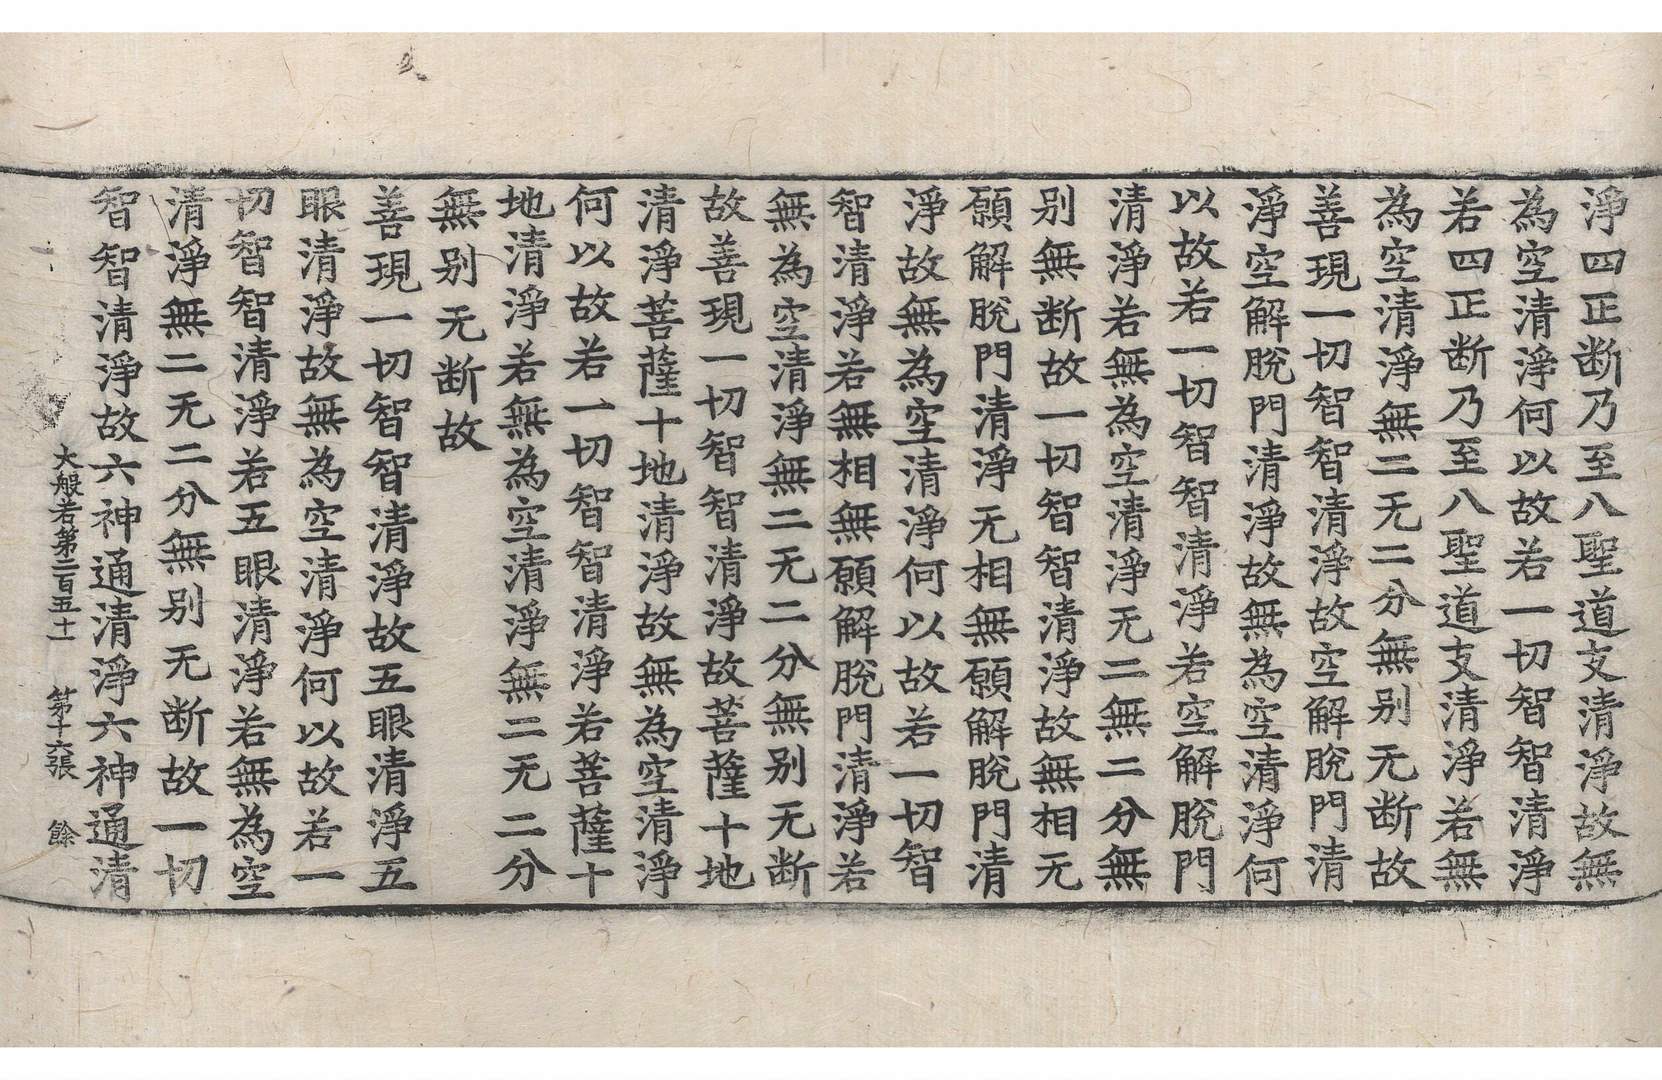 淨四正断乃至八聖道支清淨故無
為空清淨何以故若一切智智清淨
若四正断乃至八聖道支清淨若無
為空清淨無二无二分無別无断故
善現一切智智清淨故空解脫門清
淨空解脫門清淨故無為空清淨何
以故若一切智智清淨若空解脫門
清淨若無為空清淨无二無二分無
別無断故一切智智清淨故無相无
願解脫門清淨无相無願解脫門清
淨故無為空清淨何以故若一切智
智清淨若無相無願解脫門清淨若
無為空清淨無二无二分無別无断
故善現一切智智清淨故菩薩十地
清淨菩薩十地清淨故無為空清淨
何以故若一切智智清淨若菩薩十
地清淨若無為空清淨無二无二分
無別无断故
善現一切智智清淨故五眼清淨五
眼清淨故無為空清淨何以故若一
切智智清淨若五眼清淨若無為空
清淨無二无二分無別无断故一切
智智清淨故六神通清淨六神通清
大般若第二百五十一 第十六張 餘